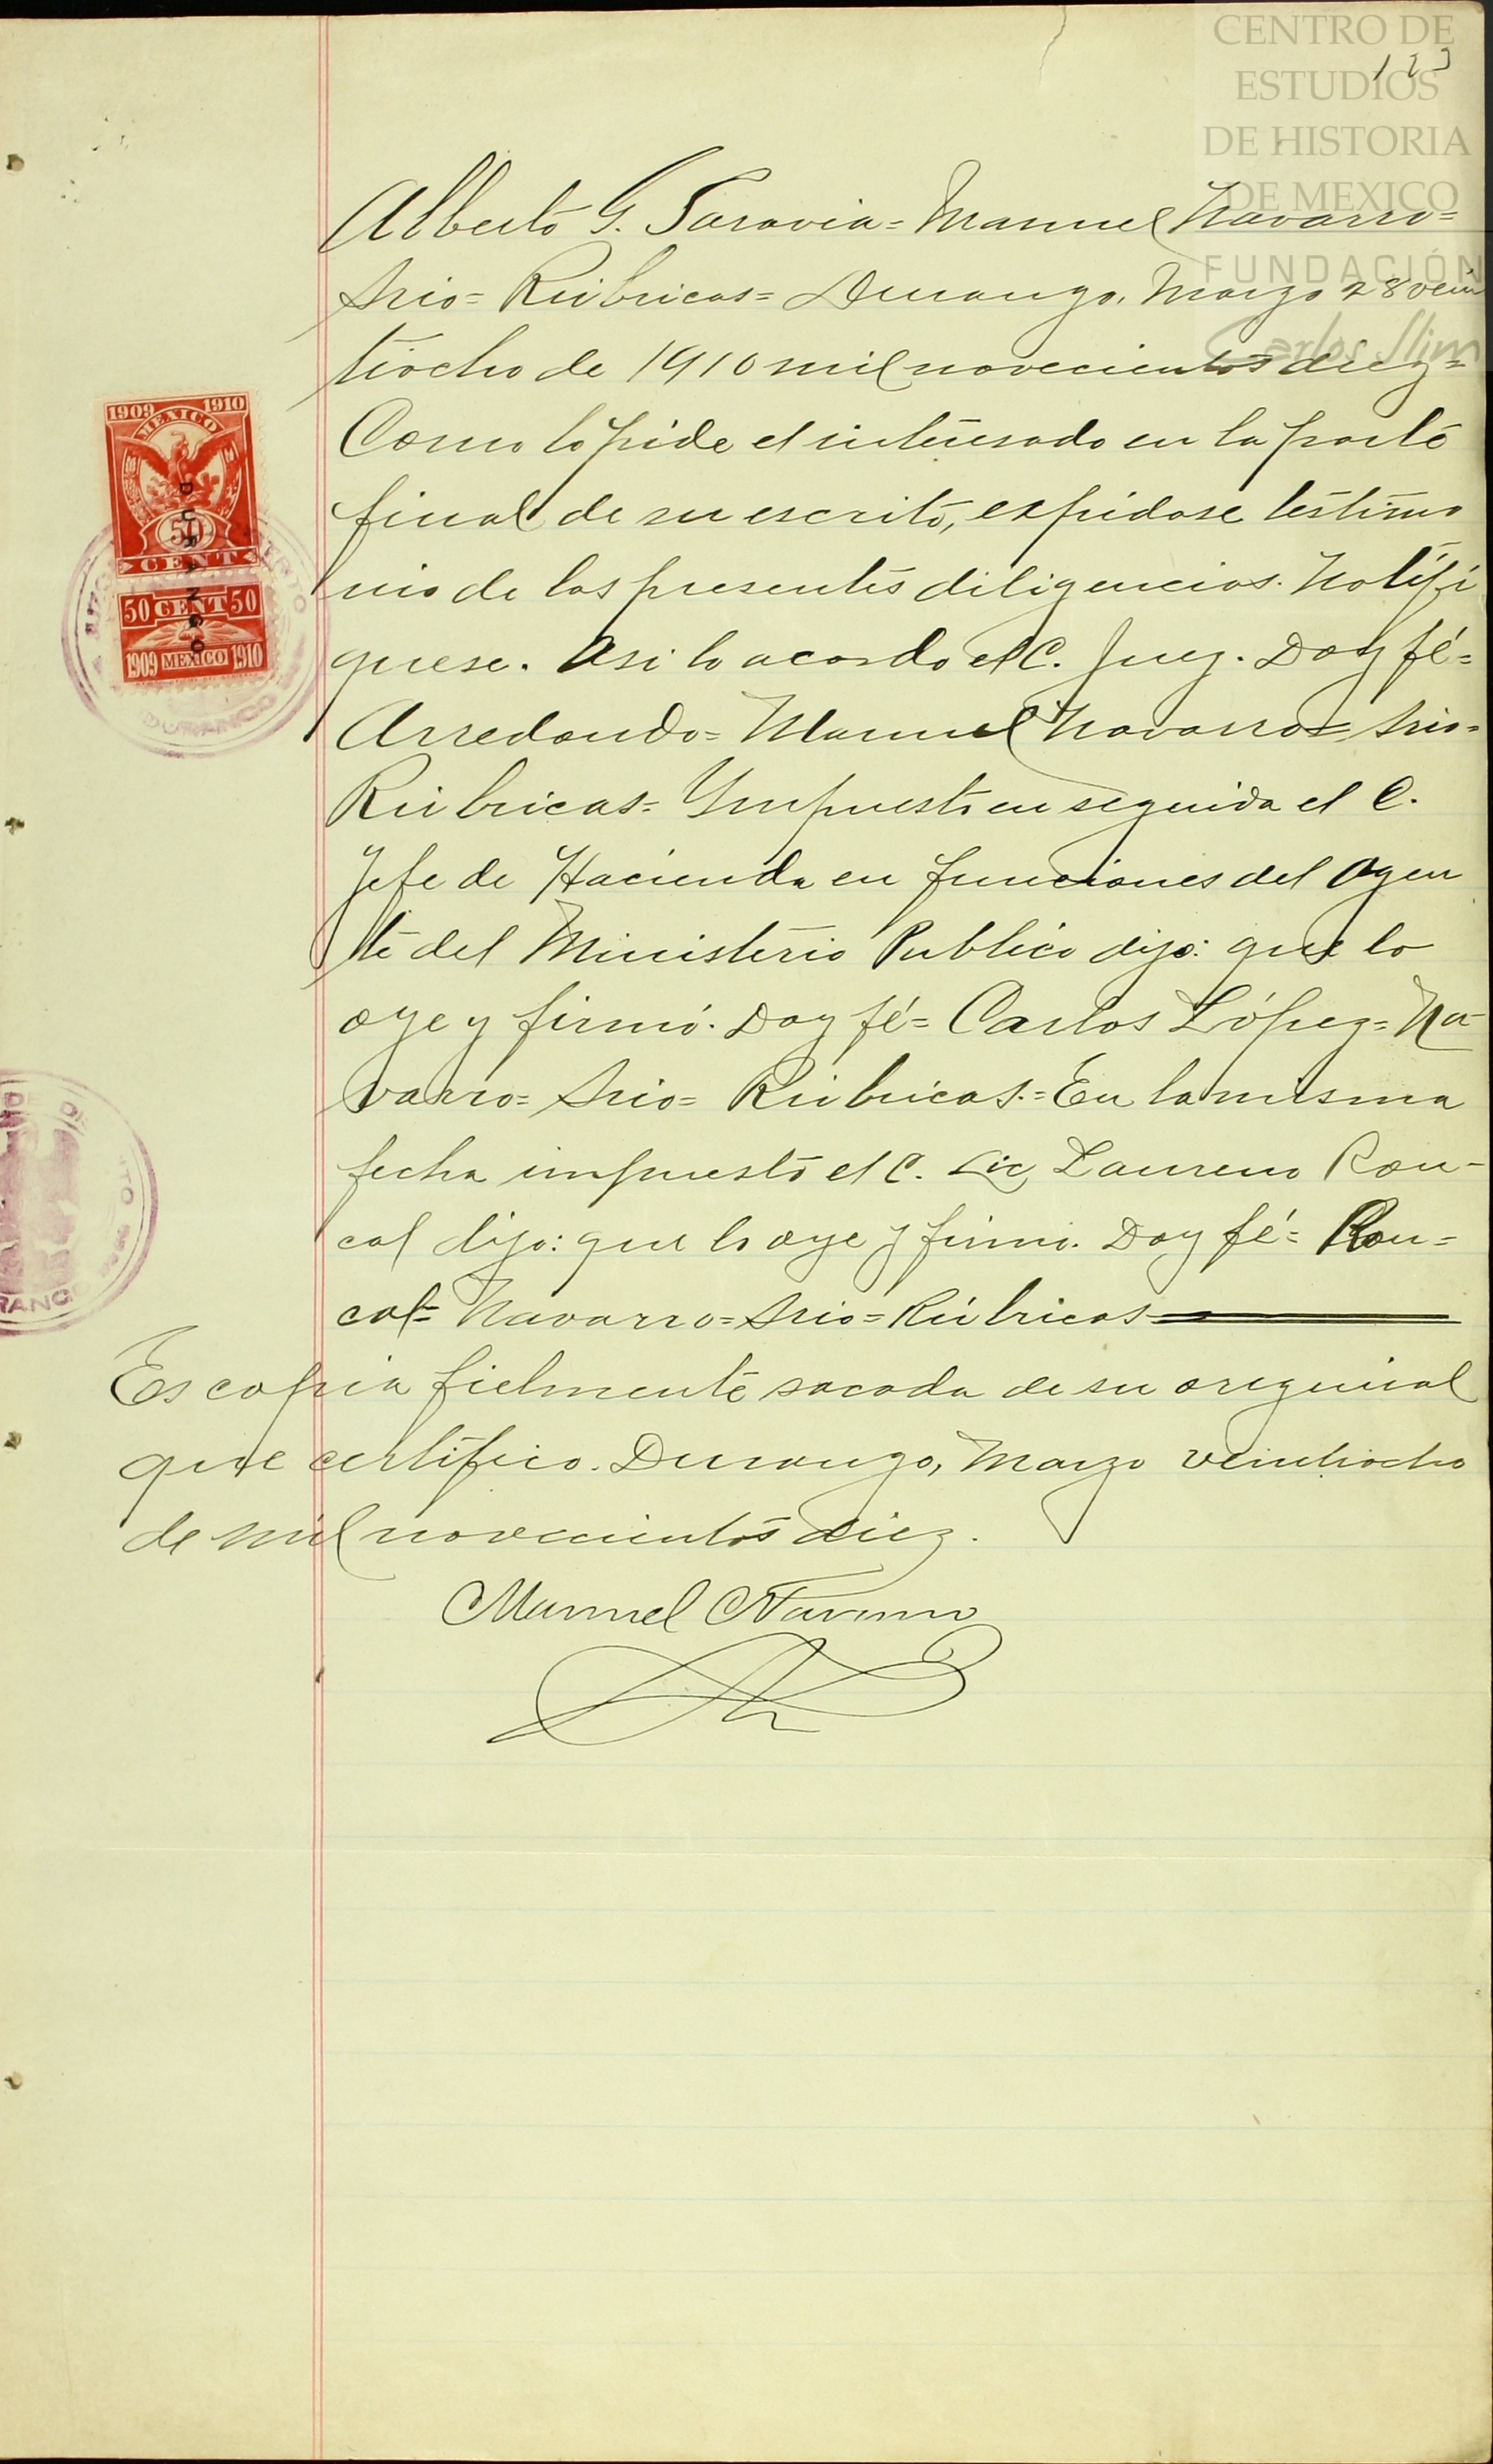 CENTRO DE
ESTUDIOS
DE HISTORIA
DE MEXICO
FUNDACIÓN
Carlos Slim
Alberto G. Saravia= Manuel Navarro=
Srio= Rúbricas= Durango, Marzo 28 vein
tiocho de 1910 mil novecientos diez=
Como lo pide el interesado en la parte
final de su escrito, expidase testimo
nio de las presentes diligencias. Notifi
quese. Asi lo acordo el C. Juez. Doy fé=
Arredondo= Manuel Navarro= Srio=
Rúbricas= Ympuesto en seguida el C.
Jefe de Hacienda en funciones del Agen
te del Ministerio Publico dijo: que lo
oye y firmó. Doy fé= Carlos López= Na-
varro= Srio= Rúbricas.= En la misma
fecha impuesto el C. Lic. Laureno Ron-
cal dijo: que lo oye y firmó. Doy fé= Ron=
cal= Navarro= Srio= Rúbricas
Es copia fielmente sacada de su origuinal
que certifico. Durango, Marzo veintiocho
de mil novecientos diez.
Manuel Navarro
1909 1910
MEXICO
50
CENT
50 CENT 50
1909 MEXICO 1910
DURANGO
DURANGO